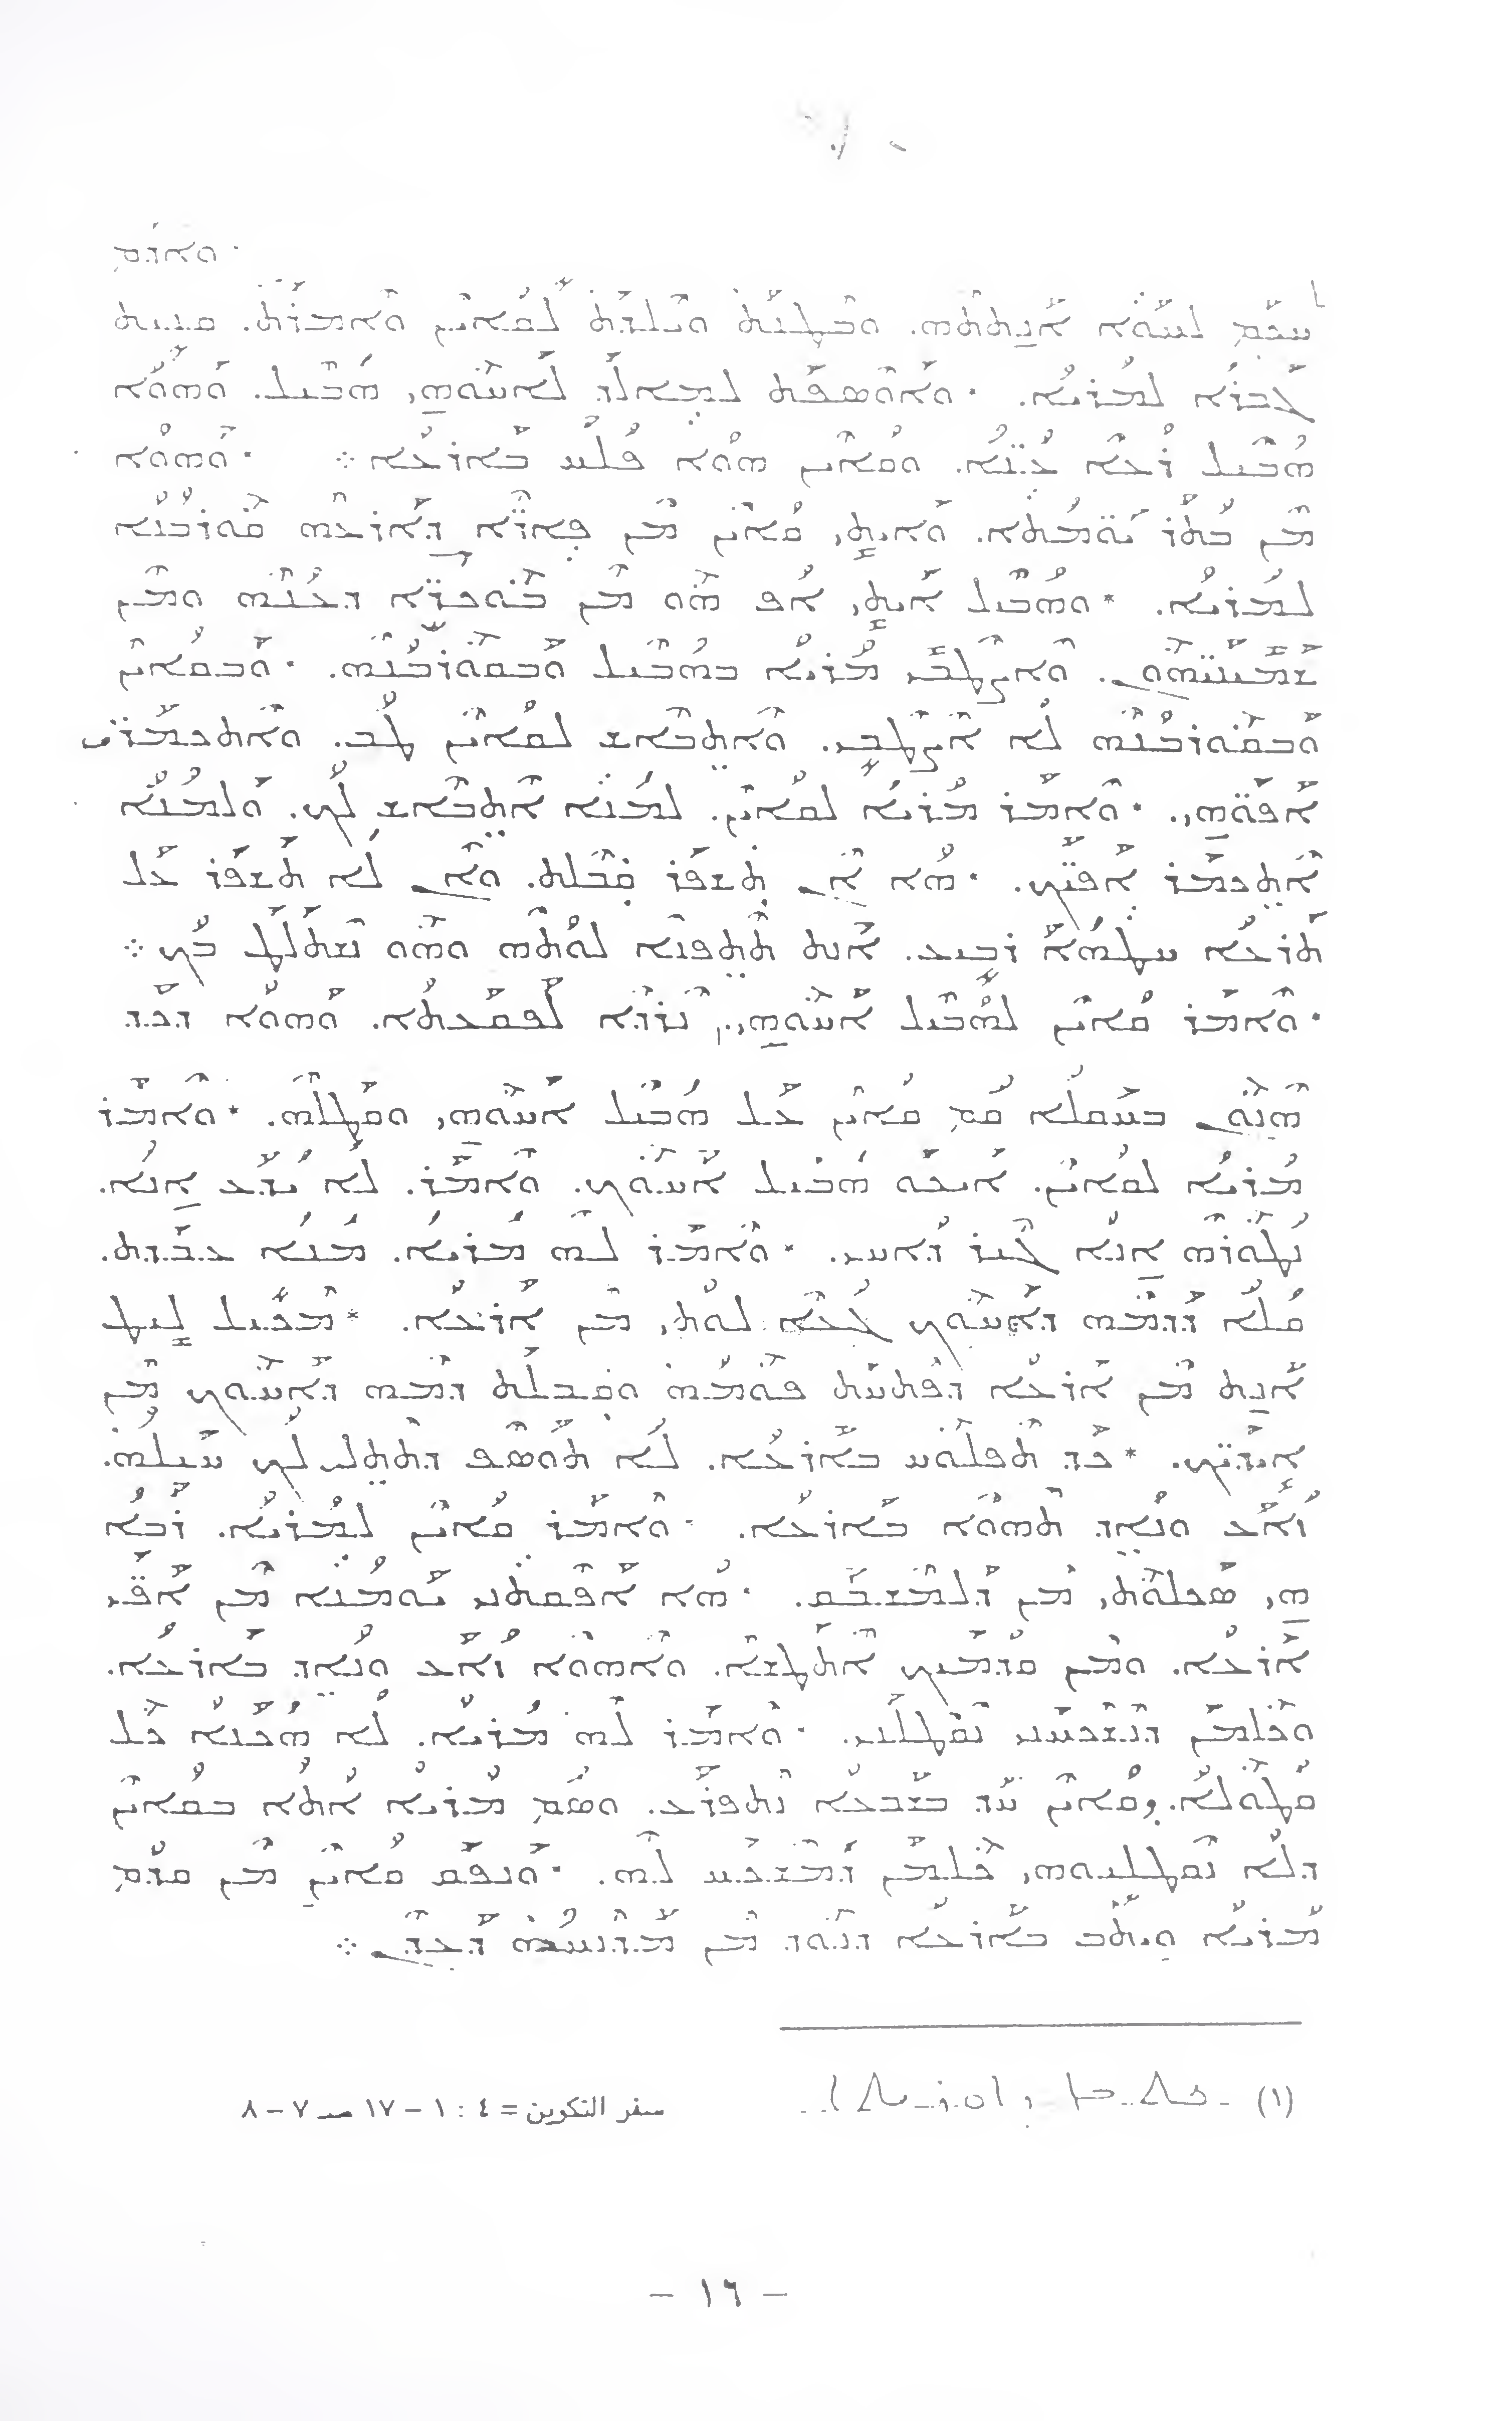 ܘܐܕܡ
ܚܟܡ ܠܚܘܐ ܐܢܬܬܗ. ܘܒܛܢܬ ܘܝܠܕܬ ܠܩܐܝܢ ܘܐܡܪܬ. ܩܢܝܬ
ܓܒܪܐ ܠܡܪܝܐ. ܘܐܘܣܦܬ ܠܡܐܠܕ ܠܐܚܘܗܝ ܗܒܝܠ. ܘܗܘܐ
ܗܒܝܠ ܪܥܐ ܥܢܐ. ܘܩܐܝܢ ܗܘܐ ܦܠܚ ܒܐܪܥܐ ܀ ܘܗܘܐ
ܡܢ ܒܬܪ ܝܘܡܬܐ. ܘܐܝܬܝ ܩܐܝܢ ܡܢ ܦܐܪܐ ܕܐܪܥܗ ܩܘܪܒܢܐ
ܠܡܪܝܐ. * ܘܗܒܝܠ ܐܝܬܝ ܐܦ ܗܘ ܡܢ ܒܘܟܪܐ ܕܥܢܗ ܘܡܢ
ܫܡܝܢܝܗܘܢ. ܘܐܨܛܒܝ ܡܪܝܐ ܒܗܒܝܠ ܘܒܩܘܪܒܢܗ. * ܘܒܩܐܝܢ
ܘܒܩܘܪܒܢܗ ܠܐ ܐܨܛܒܝ. ܘܐܬܒܐܫ ܠܩܐܝܢ ܛܒ. ܘܐܬܟܡܪܘ
ܐܦܘܗܝ. * ܘܐܡܪ ܡܪܝܐ ܠܩܐܝܢ. ܠܡܢܐ ܐܬܒܐܫ ܠܟ. ܘܠܡܢܐ
ܐܬܟܡܪܘ ܐܦܝܟ. * ܗܐ ܐܢ ܬܫܦܪ ܩܒܠܬ. ܘܐܢ ܠܐ ܬܫܦܪ ܥܠ
ܬܪܥܐ ܚܛܗܐ ܪܒܝܥ. ܐܢܬ ܬܬܦܢܐ ܠܘܬܗ ܘܗܘ ܢܫܬܠܛ ܒܟ ܀
* ܘܐܡܪ ܩܐܝܢ ܠܗܒܝܠ ܐܚܘܗܝ. ܢܪܕܐ ܠܦܩܥܬܐ. ܘܗܘܐ ܕܟܕ
ܗܢܘܢ ܒܚܩܠܐ ܩܡ ܩܐܝܢ ܥܠ ܗܒܝܠ ܐܚܘܗܝ ܘܩܛܠܗ. * ܘܐܡܪ
ܡܪܝܐ ܠܩܐܝܢ. ܐܝܟܘ ܗܒܝܠ ܐܚܘܟ. ܘܐܡܪ. ܠܐ ܝܕܥ ܐܢܐ.
ܢܛܘܪܗ ܐܢܐ ܓܝܪ ܕܐܚܝ. * ܘܐܡܪ ܠܗ ܡܪܝܐ. ܡܢܐ ܥܒܕܬ.
ܩܠܐ ܕܕܡܗ ܕܐܚܘܟ ܓܥܐ ܠܘܬܝ ܡܢ ܐܪܥܐ. * ܡܟܝܠ ܠܝܛ
ܐܢܬ ܡܢ ܐܪܥܐ ܕܦܬܚܬ ܦܘܡܗ ܘܩܒܠܬ ܕܡܗ ܕܐܚܘܟ ܡܢ
ܐܝܕܝܟ. * ܟܕ ܬܦܠܘܚ ܒܐܪܥܐ. ܠܐ ܬܘܣܦ ܕܬܬܠ ܠܟ ܚܝܠܗ.
ܙܐܥ ܘܢܐܕ ܬܗܘܐ ܒܐܪܥܐ. * ܘܐܡܪ ܩܐܝܢ ܠܡܪܝܐ. ܪܒܐ
ܗܝ ܣܟܠܘܬܝ ܡܢ ܕܠܡܫܒܩ. * ܗܐ ܐܦܩܬܢܝ ܝܘܡܢܐ ܡܢ ܐܦܝ
ܐܪܥܐ. ܘܡܢ ܩܕܡܝܟ ܐܬܛܫܐ. ܘܐܗܘܐ ܙܐܥ ܘܢܐܕ ܒܐܪܥܐ.
ܘܟܠܡܢ ܕܢܫܟܚܢܝ ܢܩܛܠܝ. * ܘܐܡܪ ܠܗ ܡܪܝܐ. ܠܐ ܗܟܢܐ ܟܠ
ܩܛܘܠܐ. ܕܩܐܝܢ ܚܕ ܒܫܒܥܐ ܢܬܦܪܥ. ܘܣܡ ܡܪܝܐ ܐܬܐ ܒܩܐܝܢ
ܕܠܐ ܢܩܛܠܝܘܗܝ ܟܠܡܢ ܕܡܫܟܚ ܠܗ. * ܘܢܦܩ ܩܐܝܢ ܡܢ ܩܕܡ
ܡܪܝܐ ܘܝܬܒ ܒܐܪܥܐ ܕܢܘܕ ܡܢ ܡܕܢܚܗ ܕܥܕܢ ܀
(١)
سفر التكوين = ٤ : ١ – ١٧ صـ ٧ – ٨
– ١٦ –